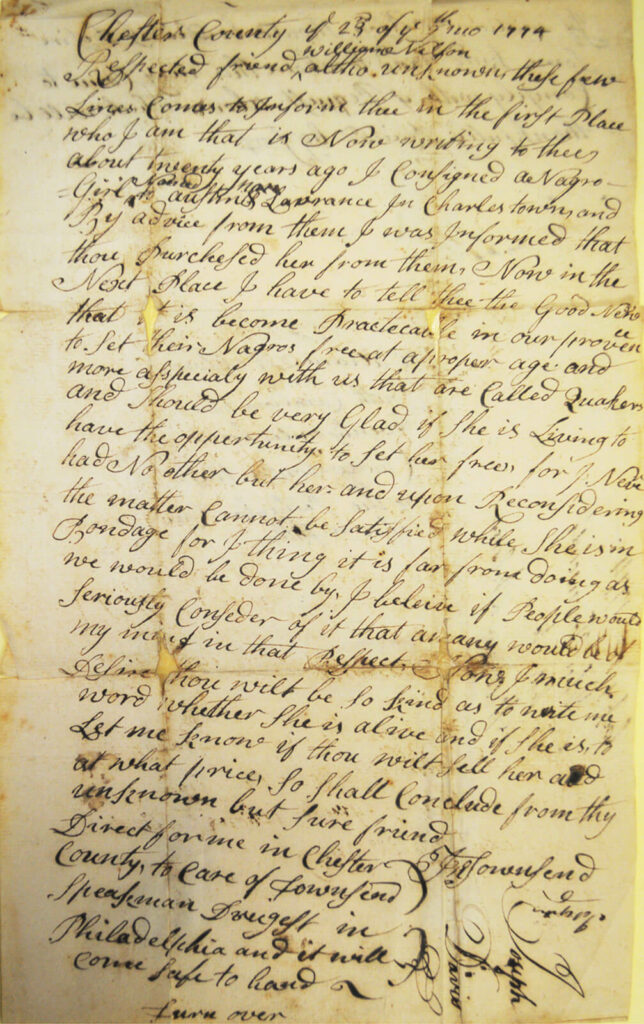 Chester County ye 23d of ye 5th mo 1774
william Nelson
Respected friend altho unknown, these few
Lines Comes to Inform thee in the first Place
who I am that is Now writing to thee,
about twenty years ago I Consigned a Nagro
Girl Named Mary
to austin & Lawrance In Charlestown, and
By advice from them I was Informed that
thou Purchesed her from them, Now in the
Next Place I have to tell thee the Good News
that it is become Practecable in our provence
to Set their Nagros free at a proper age and
more aspecialy with us that are Called Quakers
and Should be very Glad if She is Living to
have the opportunity to Set her free, for I Never
had No other but her and upon Reconsidering
the matter Cannot be Satisfied while She is in
Bondage for I thing it is far from doing as
we would be done by, I beleive if People would
Seriously Consider of it that a many would be of
my mind in that Respect, I much
Desire thou wilt be So kind as to write me
word whether She is alive and if She is, to
Let me know if thou wilt Sell her and
at what price, So Shall Conclude from thy
unknown but Sure friend
Direct for me in Chester
County, to Care of Townsend
Speakman Drugest in
Philadelphia and it will
Come Safe to hand
Townsend
Joseph
Davis
Turn over